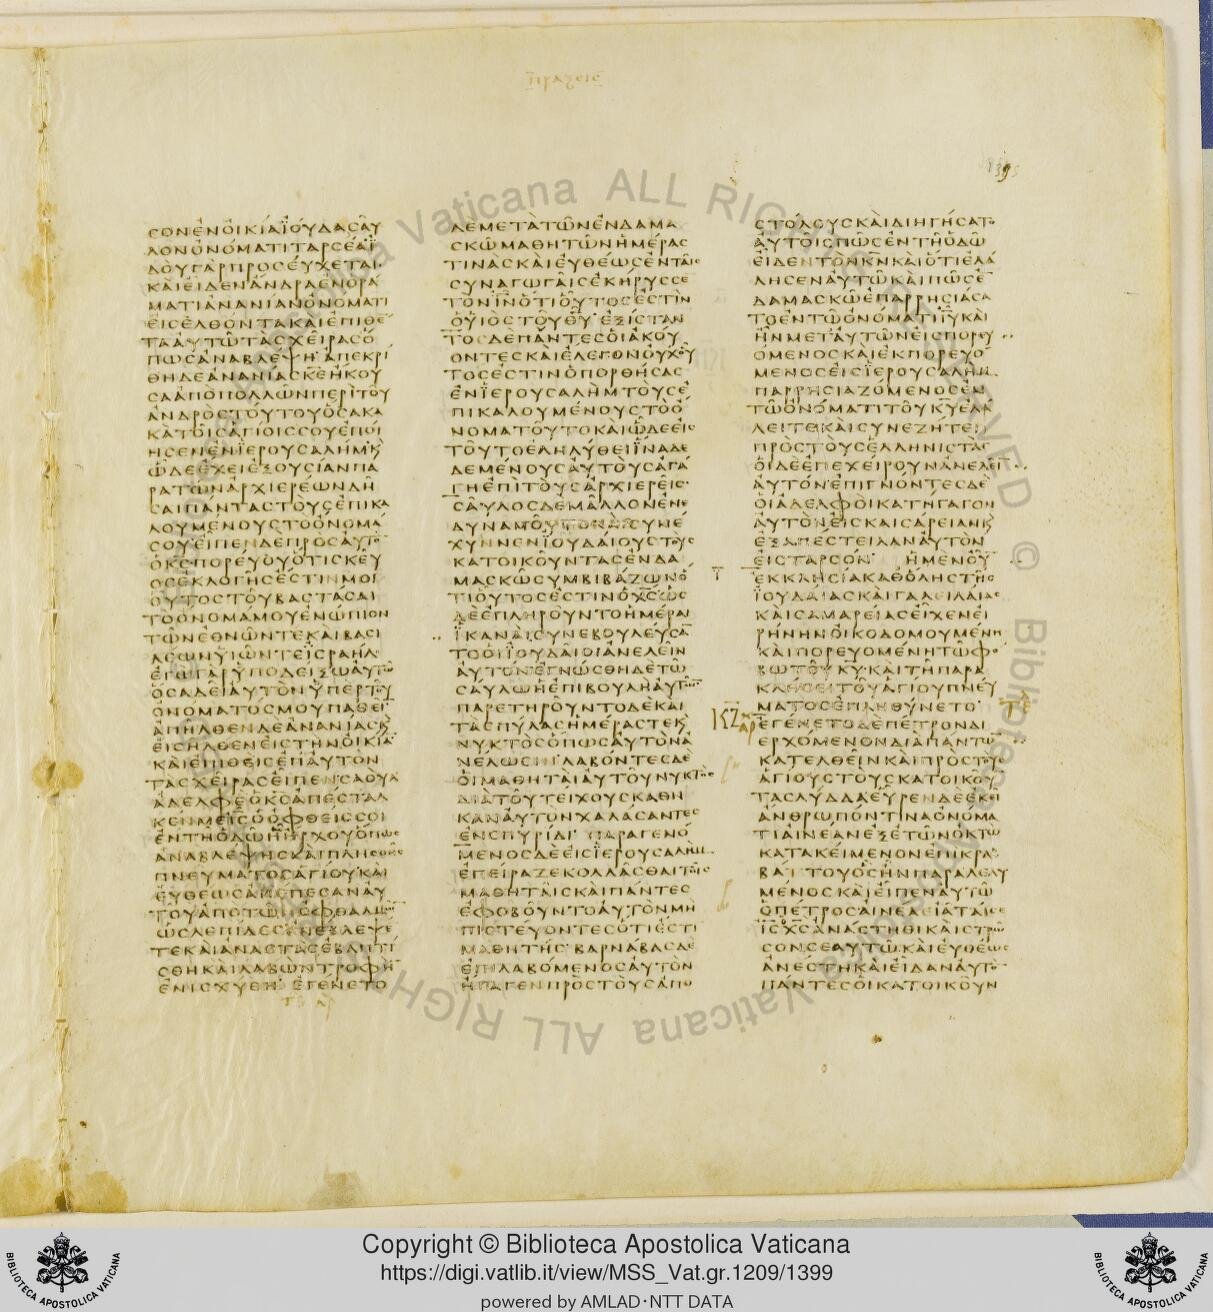 πραξεις
1395
ϹΟΝΕΝΟΙΚΙΑΪΟΥΔΑϹΑΥ
ΛΟΝΟΝΟΜΑΤΙΤΑΡϹΕΑΪ
ΔΟΥΓΑΡΠΡΟϹΕΥΧΕΤΑΙ
ΚΑΙΕΙΔΕΝΑΝΔΡΑΕΝΟΡΑ
ΜΑΤΙΑΝΑΝΙΑΝΟΝΟΜΑΤΙ
ΕΙϹΕΛΘΟΝΤΑΚΑΙΕΠΙΘΕ
ΤΑΑΥΤΩΤΑϹΧΕΙΡΑϹΟ
ΠΩϹΑΝΑΒΛΕΨΗΑΠΕΚΡΙ
ΘΗΔΕΑΝΑΝΙΑϹΚΕΗΚΟΥ
ϹΑΑΠΟΠΟΛΛΩΝΠΕΡΙΤΟΥ
ΑΝΔΡΟϹΤΟΥΤΟΥΟϹΑΚΑ
ΚΑΤΟΙϹΑΓΙΟΙϹϹΟΥΕΠΟΙ
ΗϹΕΝΕΝΪΕΡΟΥϹΑΛΗΜΚ
ΩΔΕΕΧΕΙΕΞΟΥϹΙΑΝΠΑ
ΡΑΤΩΝΑΡΧΙΕΡΕΩΝΔΗ
ϹΑΙΠΑΝΤΑϹΤΟΥϹΕΠΙΚΑ
ΛΟΥΜΕΝΟΥϹΤΟΟΝΟΜΑ
ϹΟΥΕΙΠΕΝΔΕΠΡΟϹΑΥΤΟ
ΟΚϹΠΟΡΕΥΟΥΟΤΙϹΚΕΥ
ΟϹΕΚΛΟΓΗϹΕϹΤΙΝΜΟΙ
ΟΥΤΟϹΤΟΥΒΑϹΤΑϹΑΙ
ΤΟΟΝΟΜΑΜΟΥΕΝΩΠΙΟΝ
ΤΩΝΕΘΝΩΝΤΕΚΑΙΒΑϹΙ
ΛΕΩΝΥΙΩΝΤΕΙϹΡΑΗΛ
ΕΓΩΓΑΡΥΠΟΔΕΙΞΩΑΥΤΩ
ΟϹΑΔΕΙΑΥΤΟΝΥΠΕΡΤΟΥ
ΟΝΟΜΑΤΟϹΜΟΥΠΑΘΕΙ
ΑΠΗΛΘΕΝΔΕΑΝΑΝΙΑϹΚ
ΕΙϹΗΛΘΕΝΕΙϹΤΗΝΟΙΚΙΑ
ΚΑΙΕΠΙΘΕΙϹΕΠΑΥΤΟΝ
ΤΑϹΧΕΙΡΑϹΕΙΠΕΝϹΑΟΥΛ
ΑΔΕΛΦΕΟΚϹΑΠΕϹΤΑΛ
ΚΕΝΜΕΙϹΟΟΦΘΕΙϹϹΟΙ
ΕΝΤΗΟΔΩΗΗΡΧΟΥΟΠΩϹ
ΑΝΑΒΛΕΨΗϹΚΑΙΠΛΗϹΘΗϹ
ΠΝΕΥΜΑΤΟϹΑΓΙΟΥΚΑΙ
ΕΥΘΕΩϹΑΠΕΠΕϹΑΝΑΥ
ΤΟΥΑΠΟΤΩΝΟΦΘΑΛΜΩΝ
ΩϹΛΕΠΙΔΕϹΕΝΕΒΛΕΨΕ
ΤΕΚΑΙΑΝΑϹΤΑϹΕΒΑΠΤΙ
ϹΘΗΚΑΙΛΑΒΩΝΤΡΟΦΗ
ΕΝΙϹΧΥΘΗΕΓΕΝΕΤΟ
ΔΕΜΕΤΑΤΩΝΕΝΔΑΜΑ
ϹΚΩΜΑΘΗΤΩΝΗΜΕΡΑϹ
ΤΙΝΑϹΚΑΙΕΥΘΕΩϹΕΝΤΑΙϹ
ϹΥΝΑΓΩΓΑΙϹΕΚΗΡΥϹϹΕ
ΤΟΝΙΝΟΤΙΟΥΤΟϹΕϹΤΙΝ
ΟΥΙΟϹΤΟΥΘΥΕΞΙϹΤΑΝ
ΤΟϹΔΕΠΑΝΤΕϹΟΙΑΚΟΥ
ΟΝΤΕϹΚΑΙΕΛΕΓΟΝΟΥΧΟΥ
ΤΟϹΕϹΤΙΝΟΠΟΡΘΗϹΑϹ
ΕΝΪΕΡΟΥϹΑΛΗΜΤΟΥϹΕ
ΠΙΚΑΛΟΥΜΕΝΟΥϹΤΟΟ
ΝΟΜΑΤΟΥΤΟΚΑΙΩΔΕΕΙϹ
ΤΟΥΤΟΕΛΗΛΥΘΕΙΪΝΑΔΕ
ΔΕΜΕΝΟΥϹΑΥΤΟΥϹΑΓΑ
ΓΗΕΠΙΤΟΥϹΑΡΧΙΕΡΕΙϹ
ϹΑΥΛΟϹΔΕΜΑΛΛΟΝΕΝΕ
ΔΥΝΑΜΟΥΤΟΚΑΙϹΥΝΕ
ΧΥΝΝΕΝΪΟΥΔΑΙΟΥϹΤΟΥϹ
ΚΑΤΟΙΚΟΥΝΤΑϹΕΝΔΑ
ΜΑϹΚΩϹΥΜΒΙΒΑΖΩΝΟ
ΤΙΟΥΤΟϹΕϹΤΙΝΟΧϹΩϹ
ΔΕΕΠΛΗΡΟΥΝΤΟΗΜΕΡΑΙ
ΪΚΑΝΑΙϹΥΝΕΒΟΥΛΕΥϹΑ
ΤΟΟΙΪΟΥΔΑΙΟΙΑΝΕΛΕΙΝ
ΑΥΤΟΝΕΓΝΩϹΘΗΔΕΤΩ
ϹΑΥΛΩΗΕΠΙΒΟΥΛΗΑΥΤΩΝ
ΠΑΡΕΤΗΡΟΥΝΤΟΔΕΚΑΙ
ΤΑϹΠΥΛΑϹΗΜΕΡΑϹΤΕΚ
ΝΥΚΤΟϹΟΠΩϹΑΥΤΟΝΑ
ΝΕΛΩϹΙΝΛΑΒΟΝΤΕϹΔΕ
ΟΙΜΑΘΗΤΑΙΑΥΤΟΥΝΥΚΤΟϹ
ΔΙΑΤΟΥΤΕΙΧΟΥϹΚΑΘΗ
ΚΑΝΑΥΤΟΝΧΑΛΑϹΑΝΤΕϹ
ΕΝϹΠΥΡΙΔΙΠΑΡΑΓΕΝΟ
ΜΕΝΟϹΔΕΕΙϹΪΕΡΟΥϹΑΛΗΜ
ΕΠΕΙΡΑΖΕΚΟΛΛΑϹΘΑΙΤΟΙϹ
ΜΑΘΗΤΑΙϹΚΑΙΠΑΝΤΕϹ
ΕΦΟΒΟΥΝΤΟΑΥΤΟΝΜΗ
ΠΙϹΤΕΥΟΝΤΕϹΟΤΙΕϹΤΙ
ΜΑΘΗΤΗϹΒΑΡΝΑΒΑϹΔΕ
ΕΠΙΛΑΒΟΜΕΝΟϹΑΥΤΟΝ
ΗΓΑΓΕΝΠΡΟϹΤΟΥϹΑΠΟ
ϹΤΟΛΟΥϹΚΑΙΔΙΗΓΗϹΑΤΟ
ΑΥΤΟΙϹΠΩϹΕΝΤΗΟΔΩ
ΕΙΔΕΝΤΟΝΚΝΚΑΙΟΤΙΕΛΑ
ΛΗϹΕΝΑΥΤΩΚΑΙΠΩϹΕ
ΔΑΜΑϹΚΩΕΠΑΡΡΗϹΙΑϹΑ
ΤΟΕΝΤΩΟΝΟΜΑΤΙΙΥΚΑΙ
ΗΝΜΕΤΑΥΤΩΝΕΙϹΠΟΡΕΥ
ΟΜΕΝΟϹΚΑΙΕΚΠΟΡΕΥΟ
ΜΕΝΟϹΕΙϹΪΕΡΟΥϹΑΛΗΜ
ΠΑΡΡΗϹΙΑΖΟΜΕΝΟϹΕΝ
ΤΩΟΝΟΜΑΤΙΤΟΥΚΥΕΛΑ
ΛΕΙΤΕΚΑΙϹΥΝΕΖΗΤΕΙ
ΠΡΟϹΤΟΥϹΕΛΛΗΝΙϹΤΑϹ
ΟΙΔΕΕΠΕΧΕΙΡΟΥΝΑΝΕΛΕΙ
ΑΥΤΟΝΕΠΙΓΝΟΝΤΕϹΔΕ
ΟΙΑΔΕΛΦΟΙΚΑΤΗΓΑΓΟΝ
ΑΥΤΟΝΕΙϹΚΑΙϹΑΡΕΙΑΝΚ
ΕΞΑΠΕϹΤΕΙΛΑΝΑΥΤΟΝ
ΕΙϹΤΑΡϹΟΝ ΗΜΕΝΟΥ
ΕΚΚΛΗϹΙΑΚΑΘΟΛΗϹΤΗϹ
ΪΟΥΔΑΙΑϹΚΑΙΓΑΛΕΙΛΑΙΑϹ
ΚΑΙϹΑΜΑΡΕΙΑϹΕΙΧΕΝΕΙ
ΡΗΝΗΝΟΙΚΟΔΟΜΟΥΜΕΝΗ
ΚΑΙΠΟΡΕΥΟΜΕΝΗΤΩΦΟ
ΒΩΤΟΥΚΥΚΑΙΤΗΠΑΡΑ
ΚΛΗϹΕΙΤΟΥΑΓΙΟΥΠΝΕΥ
ΜΑΤΟϹΕΠΛΗΘΥΝΕΤΟ
ΕΓΕΝΕΤΟΔΕΠΕΤΡΟΝΔΙ
ΕΡΧΟΜΕΝΟΝΔΙΑΠΑΝΤΩ
ΚΑΤΕΛΘΕΙΝΚΑΙΠΡΟϹΤΟΥϹ
ΑΓΙΟΥϹΤΟΥϹΚΑΤΟΙΚΟΥ
ΤΑϹΛΥΔΔΑΕΥΡΕΝΔΕΕΚΕΙ
ΑΝΘΡΩΠΟΝΤΙΝΑΟΝΟΜΑ
ΤΙΑΙΝΕΑΝΕΞΕΤΩΝΟΚΤΩ
ΚΑΤΑΚΕΙΜΕΝΟΝΕΠΙΚΡΑ
ΒΑΤΤΟΥΟϹΗΝΠΑΡΑΛΕΛΥ
ΜΕΝΟϹΚΑΙΕΙΠΕΝΑΥΤΩ
ΟΠΕΤΡΟϹΑΙΝΕΑΙΑΤΑΙϹΕ
ΙϹΧϹΑΝΑϹΤΗΘΙΚΑΙϹΤΡΩ
ϹΟΝϹΕΑΥΤΩΚΑΙΕΥΘΕΩϹ
ΑΝΕϹΤΗΚΑΙΕΙΔΑΝΑΥΤΟ
ΠΑΝΤΕϹΟΙΚΑΤΟΙΚΟΥΝ
Copyright © Biblioteca Apostolica Vaticana
https://digi.vatlib.it/view/MSS_Vat.gr.1209/1399
powered by AMLAD·NTT DATA